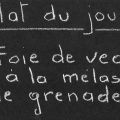 lat du jou
Foie de vea
à la mélas
de grenade